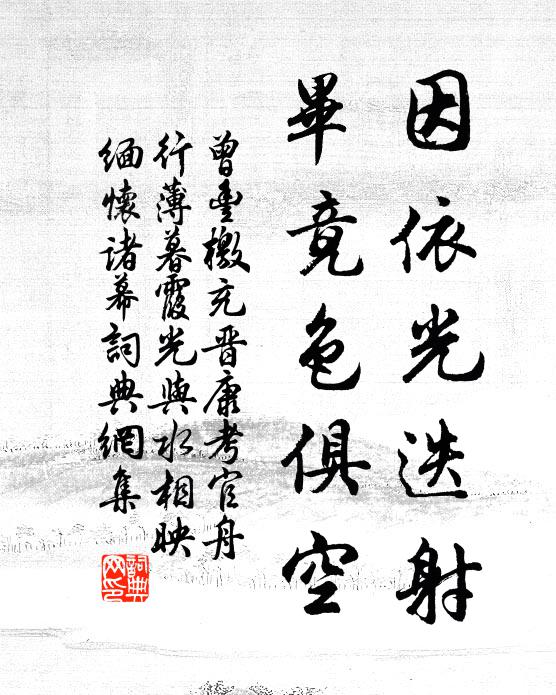 因依光迭射
畢竟色俱空
曾豐檄充晋康考官舟
行薄暮霞光與水相映
緬懷諸幕詞典網集
詞典网印